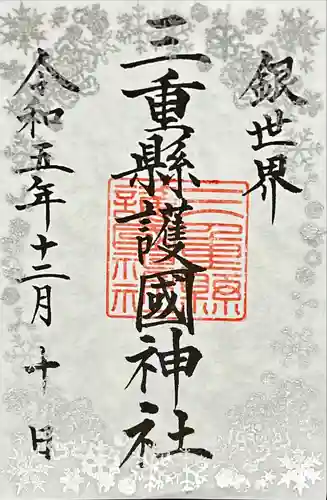 銀世界
三重縣護國神社
令和五年十二月十日
三重縣護國神社